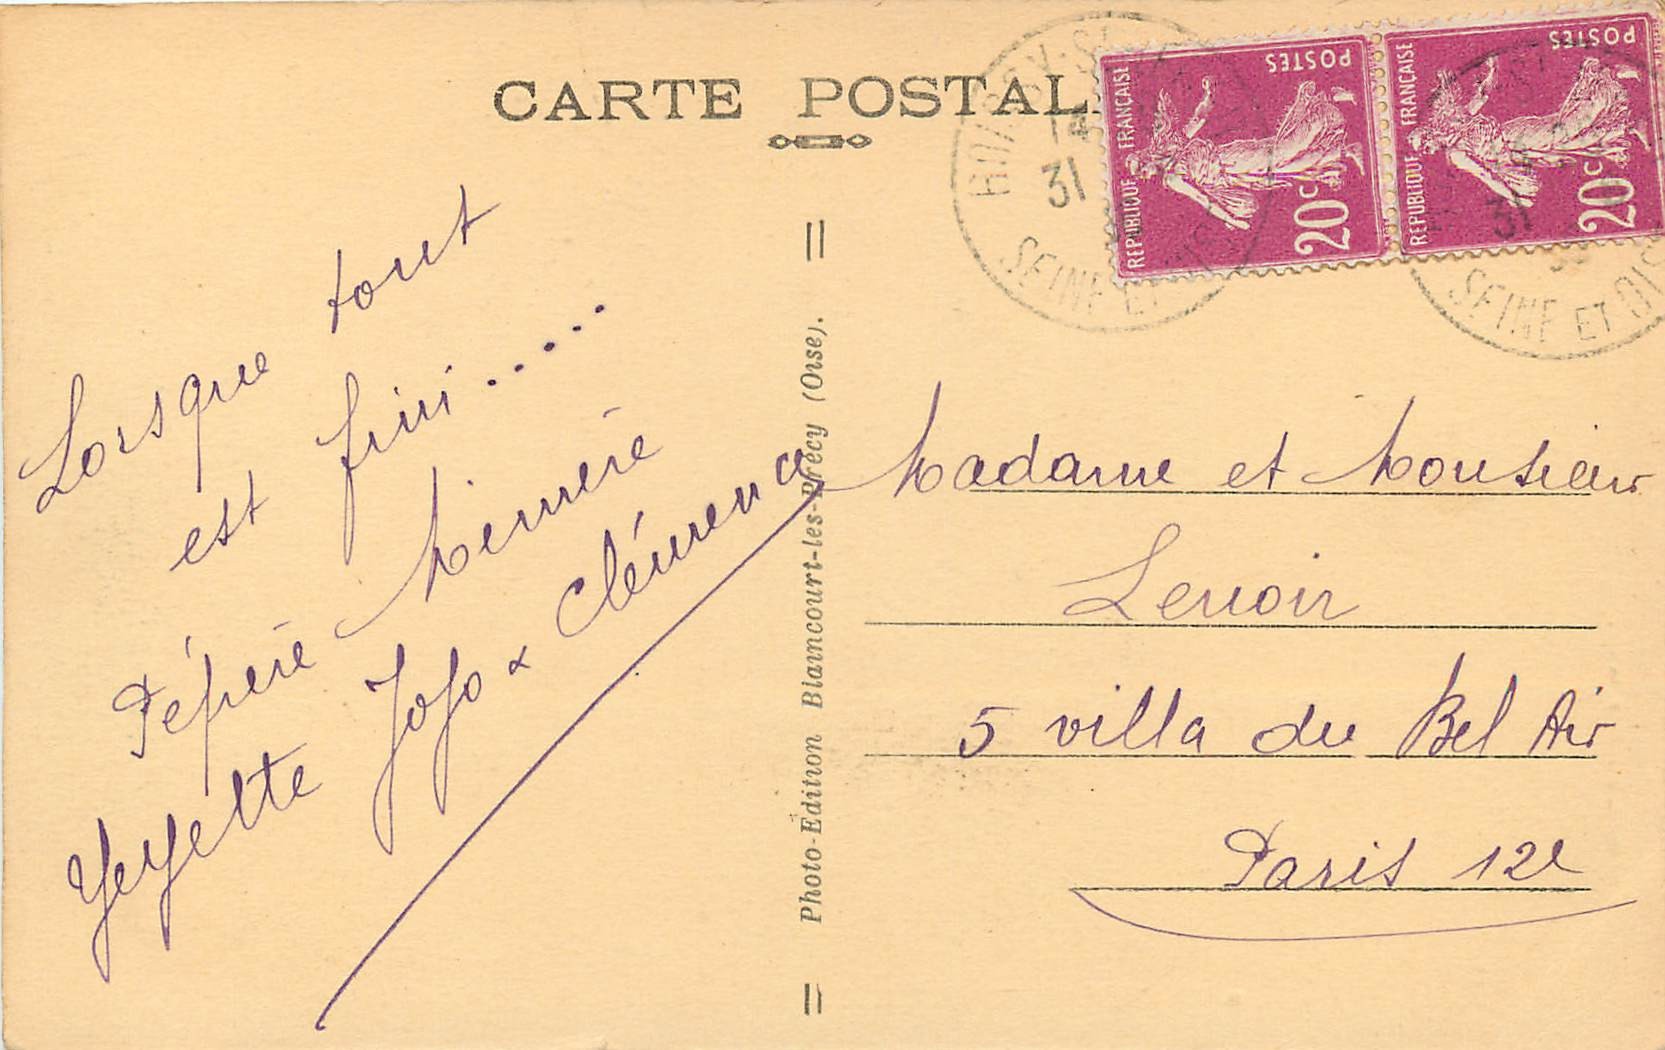 CARTE POSTAL
Lorsque tout
est fini.......
Pépère Mémère
Yeyette Jojo & Clémence
Photo-Edition Blaincourt-les-Précy (Oise).
REPUBLIQUE FRANÇAISE
POSTES
20c
REPUBLIQUE FRANÇAISE
POSTES
20c
31
SEINE ET OISE
31
SEINE ET OIS
Madame et Monsieur
Lenoir
5 villa du Bel Air
Paris 12e